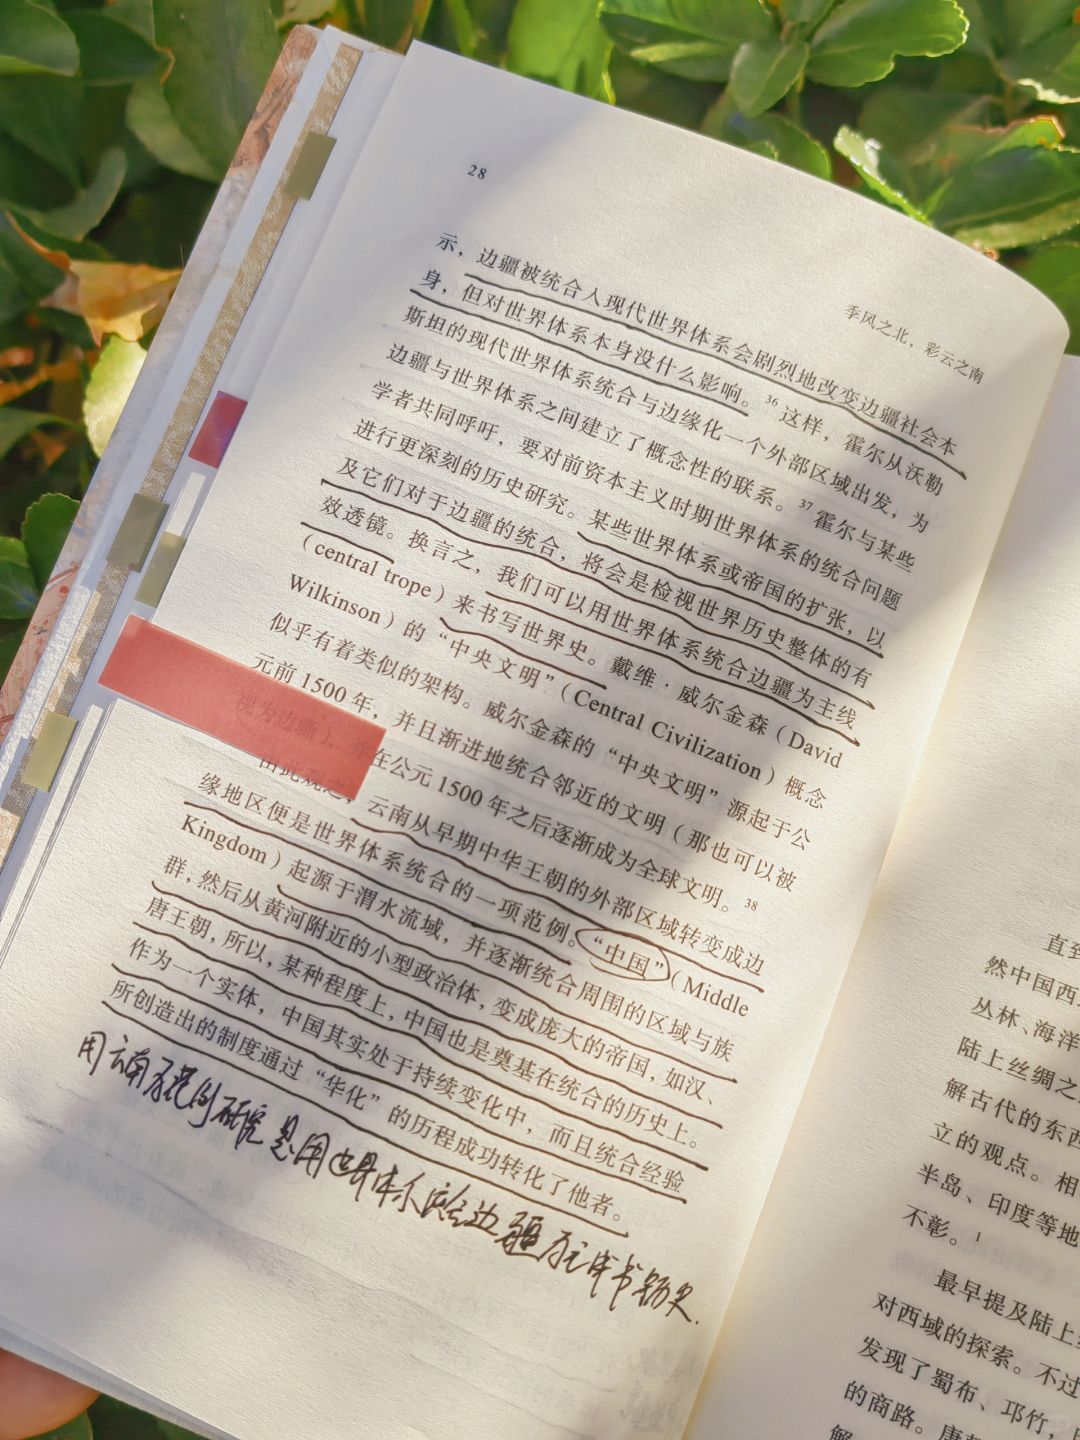 28
季风之北，彩云之南
示，边疆被统合入现代世界体系会剧烈地改变边疆社会本
身，但对世界体系本身没什么影响。36 这样，霍尔从沃勒
斯坦的现代世界体系统合与边缘化一个外部区域出发，为
边疆与世界体系之间建立了概念性的联系。37 霍尔与某些
学者共同呼吁，要对前资本主义时期世界体系的统合问题
进行更深刻的历史研究。某些世界体系或帝国的扩张，以
及它们对于边疆的统合，将会是检视世界历史整体的有
效透镜。换言之，我们可以用世界体系统合边疆为主线
（central trope）来书写世界史。戴维·威尔金森（David
Wilkinson）的“中央文明”（Central Civilization）概念
似乎有着类似的架构。威尔金森的“中央文明”源起于公
元前 1500 年，并且渐进地统合邻近的文明（那也可以被
在公元 1500 年之后逐渐成为全球文明。38
由此观之，云南从早期中华王朝的外部区域转变成边
缘地区便是世界体系统合的一项范例。“中国”（Middle
Kingdom）起源于渭水流域，并逐渐统合周围的区域与族
群，然后从黄河附近的小型政治体，变成庞大的帝国，如汉、
唐王朝，所以，某种程度上，中国也是奠基在统合的历史上。
作为一个实体，中国其实处于持续变化中，而且统合经验
所创造出的制度通过“华化”的历程成功转化了他者。
用云南为范例研究 是用世界体系统合边疆为主线书写历史.
直到
然中国西
丛林、海洋
陆上丝绸之
解古代的东西
立的观点。相
半岛、印度等地
不彰。1
最早提及陆上丝
对西域的探索。不过
发现了蜀布、邛竹，
的商路。唐
解